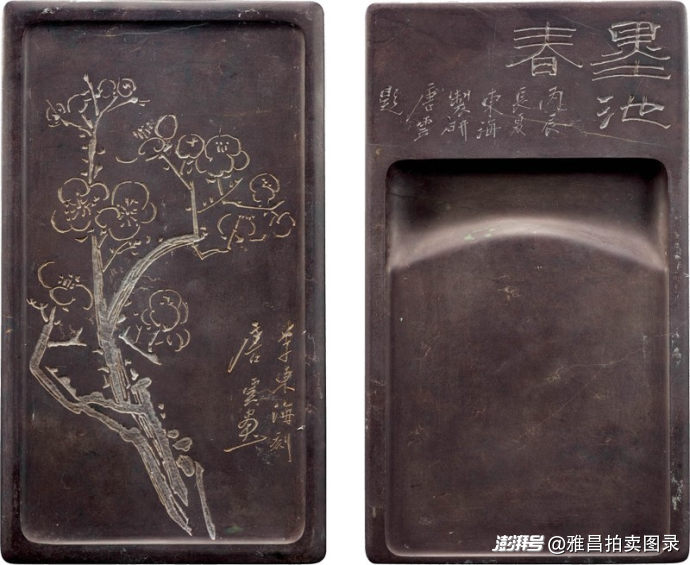 李東海刻
唐雲畫
墨池
春
丙辰
長夏
東海
製研
唐雲
題
澎湃号@雅昌拍卖图录